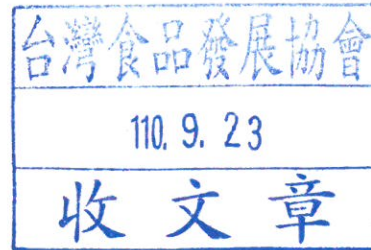 台灣食品發展協會
110. 9. 23
收文章